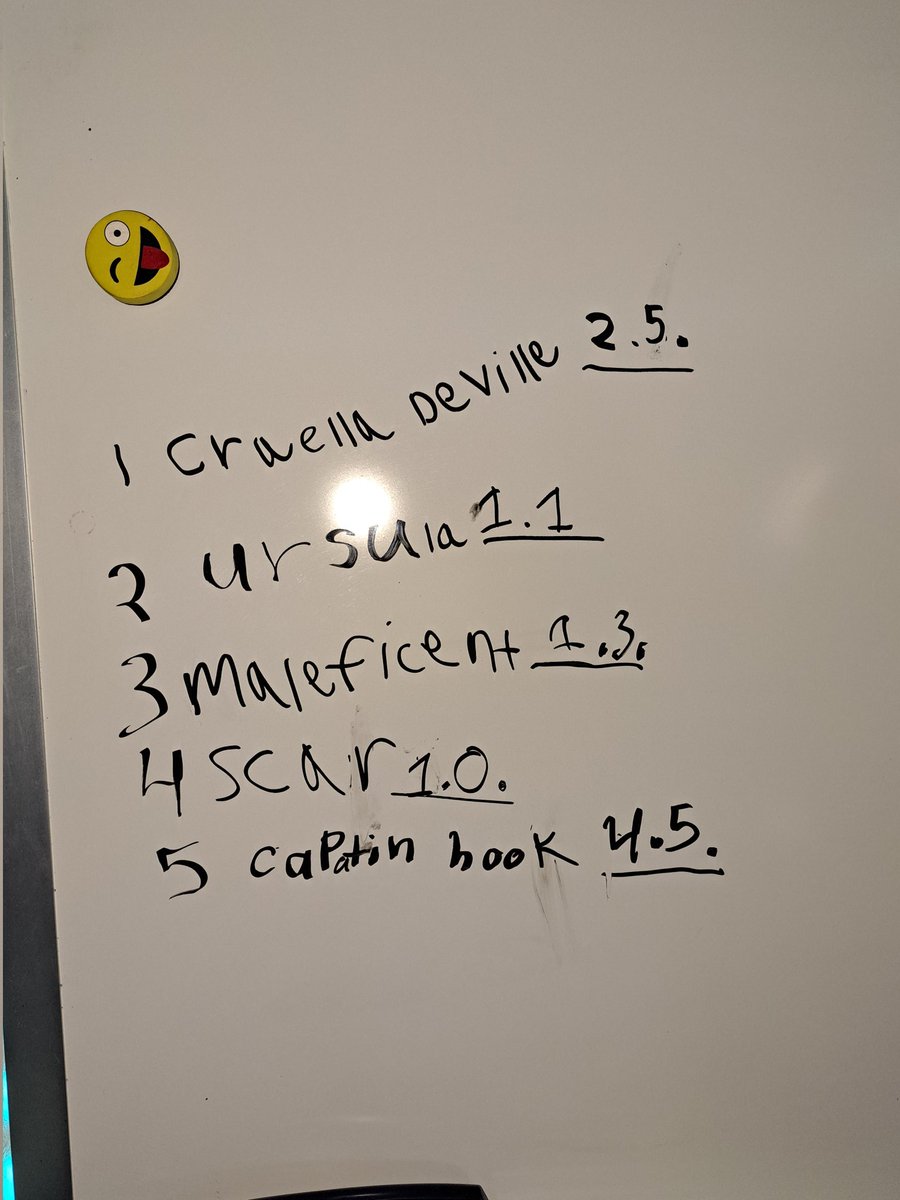 1 Cruella Deville 2.5.
2 ursula 1.1
3 maleficent 1.3.
4 scar 1.0.
5 captin hook 4.5.